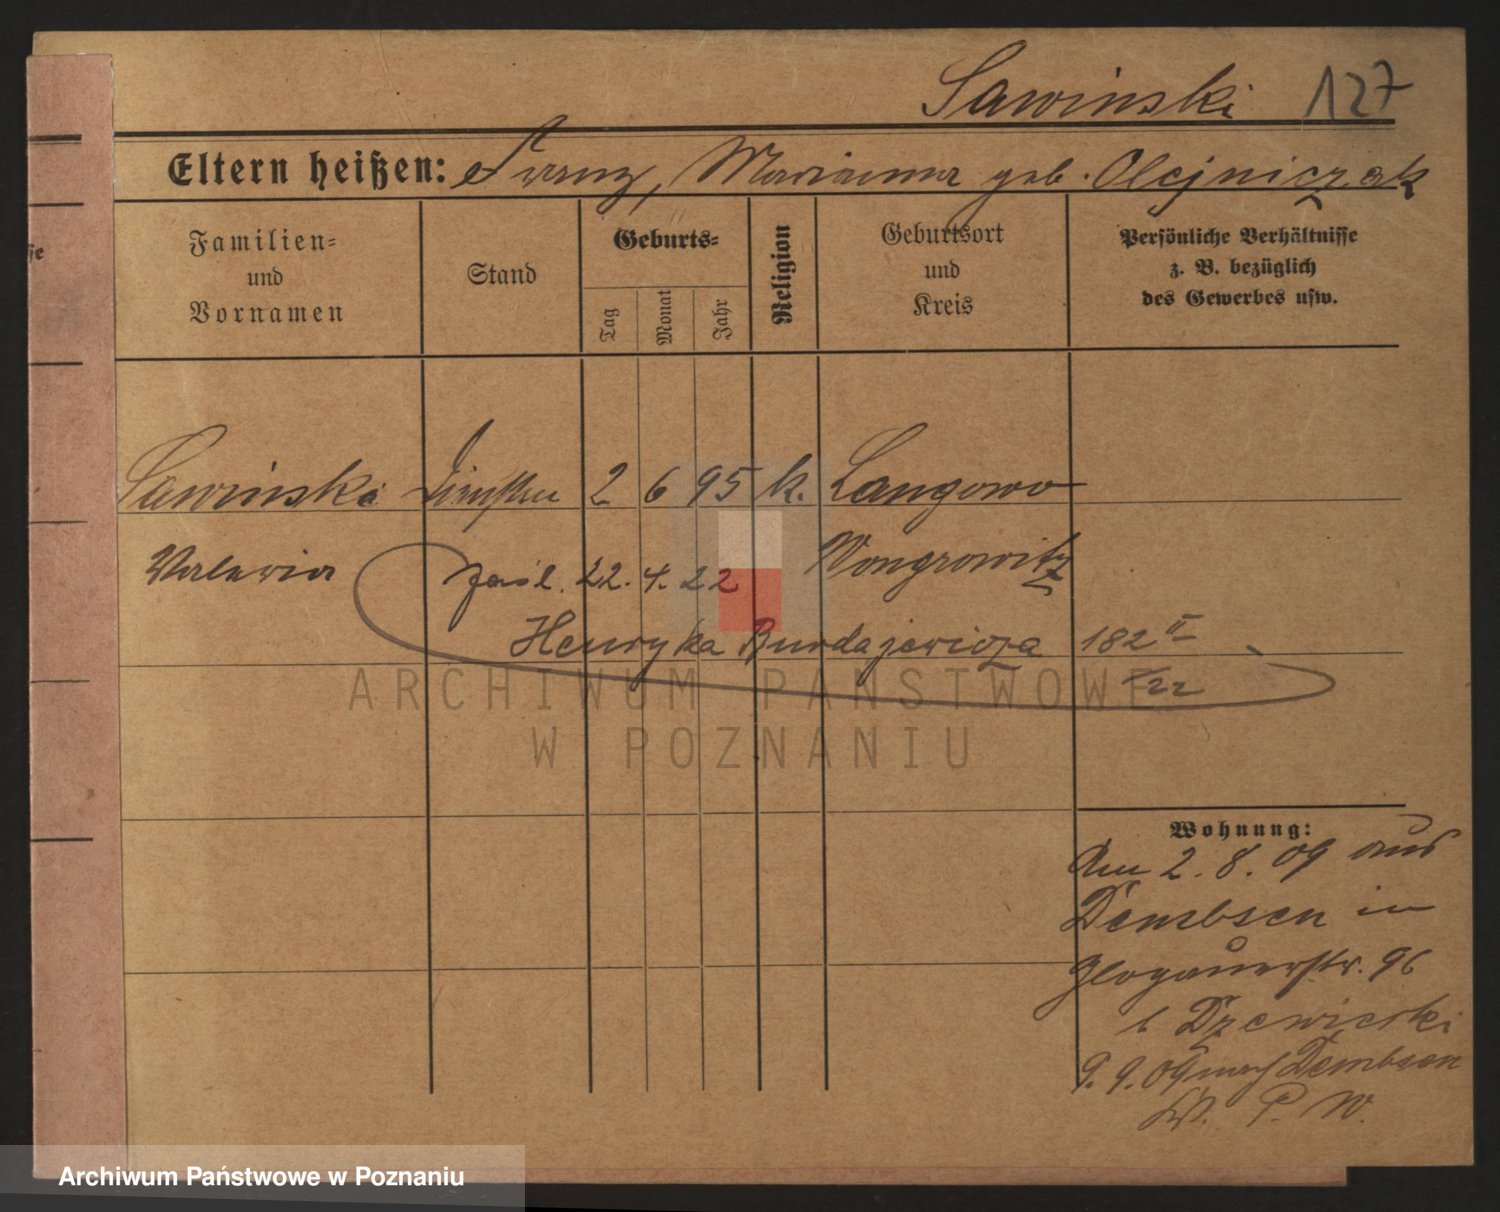 Sawinski 127
Eltern heißen: Franz, Marianna geb. Olejniczak
Familien=
und
Vornamen
Stand
Geburts=
Tag
Monat
Jahr
Religion
Geburtsort
und
Kreis
Persönliche Verhältnisse
z. B. bezüglich
des Gewerbes usw.
Sawinska 2 6 95 k. Langowo
Valeria Wongrowitz
zaśl. 22. 4. 22
Henryka Burdajewicza 182 II
/22
ARCHIWUM PAŃSTWOWE
W POZNANIU
Wohnung:
Am 2. 8. 09 aus
Dembsen in
Glogauerstr. 96
b Dzewiecki
9. 9. 09 nach Dembsen
P. W.
se
Archiwum Państwowe w Poznaniu